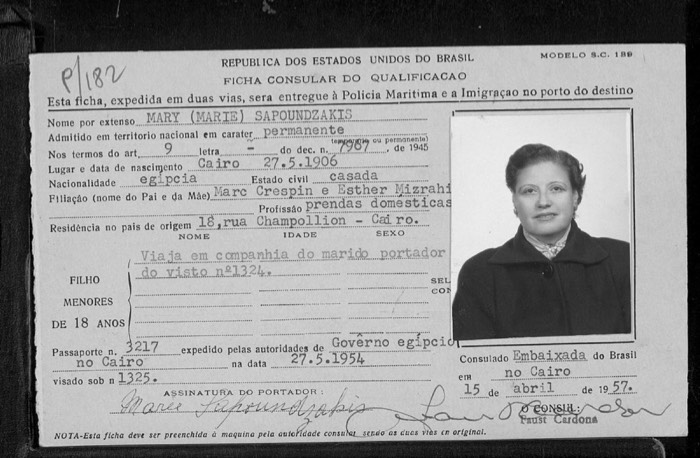 P/182
REPUBLICA DOS ESTADOS UNIDOS DO BRASIL
MODELO S.C. 139
FICHA CONSULAR DO QUALIFICACAO
Esta ficha, expedida em duas vias, sera entregue à Policia Maritima e a Imigraçao no porto do destino
Nome por extenso MARY (MARIE) SAPOUNDZAKIS
Admitido em territorio nacional em carater permanente
(temporario ou permanente)
Nos termos do art. 9 letra - do dec. n. 7967 , de 1945
Lugar e data de nascimento Cairo 27.5.1906
Nacionalidade egipcia Estado civil casada
Filiação (nome do Pai e da Mãe) Marc Crespin e Esther Mizrahi
Profissão prendas domesticas
Residência no pais de origem 18,rua Champollion - Cairo.
NOME IDADE SEXO
FILHO
MENORES
DE 18 ANOS
Viaja em companhia do marido portador
do visto nº1324.
Passaporte n. 3217 expedido pelas autoridades de Govêrno egípcio
no Cairo na data 27.5.1954
visado sob n 1325.
Consulado Embaixada do Brasil
em no Cairo
15 de abril de 1957.
ASSINATURA DO PORTADOR:
Marie Sapoundzakis
O CONSUL:
Faust Cardona
NOTA-Esta ficha deve ser preenchida à maquina pela autoridade consular sendo as duas vias en original.